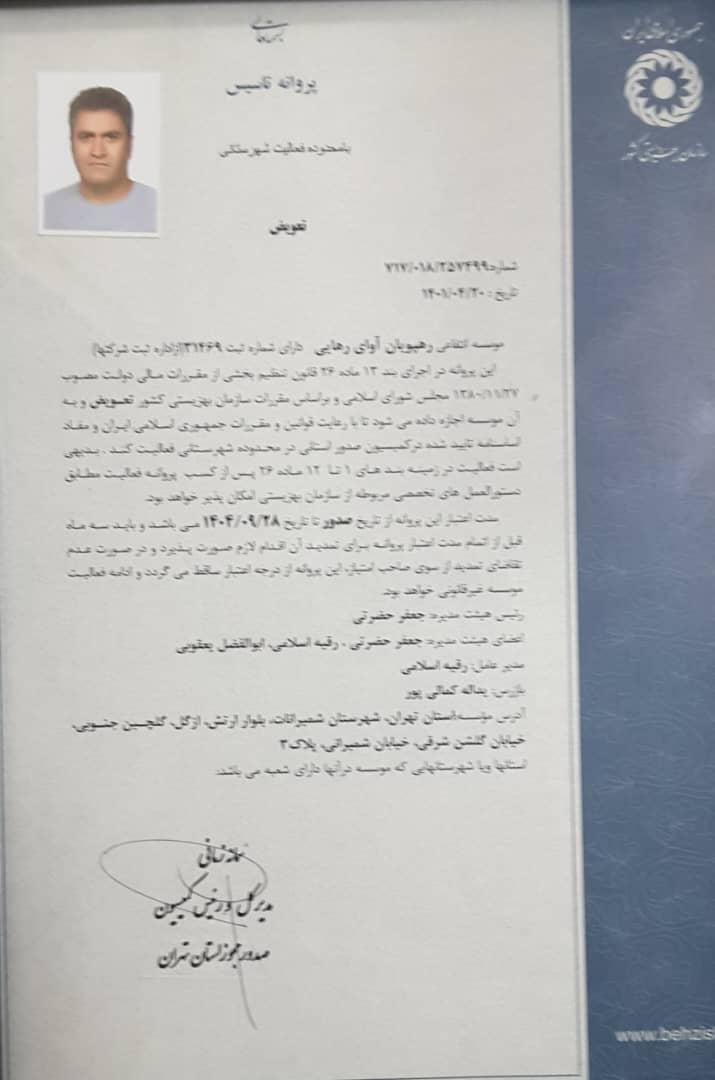 جمهوری اسلامی ایران
سازمان بهزیستی کشور
بسمه تعالی
پروانه تاسیس
بامحدوده فعالیت شهرستانی
تعویض
شماره:۷۱۷/۰۱۸/۲۵۷۴۹۹
تاریخ : ۱۴۰۱/۰۴/۲۰
موسسه انتفاعی رهپویان آوای رهایی دارای شماره ثبت ۳۱۴۶۹(ازاداره ثبت شرکتها)
این پروانه در اجرای بند ۱۳ ماده ۲۶ قانون تنظیم بخشی از مقررات مالی دولت مصوب
۱۳۸۰/۱۱/۲۷ مجلس شورای اسلامی و براساس مقررات سازمان بهزیستی کشور تعویض و به
آن موسسه اجازه داده می شود تا با رعایت قوانین و مقررات جمهوری اسلامی ایران و مفاد
اساسنامه تایید شده درکمیسیون صدور استانی در محدوده شهرستانی فعالیت کند . بدیهی
است فعالیت در زمینه بند های ۱ تا ۱۲ ماده ۲۶ پس از کسب پروانه فعالیت مطابق
دستورالعمل های تخصصی مربوطه از سازمان بهزیستی امکان پذیر خواهد بود.
مدت اعتبار این پروانه از تاریخ صدور تا تاریخ ۱۴۰۴/۰۹/۲۸ می باشد و باید سه ماه
قبل از اتمام مدت اعتبار پروانه برای تمدید آن اقدام لازم صورت پذیرد و در صورت عدم
تقاضای تمدید از سوی صاحب امتیاز، این پروانه از درجه اعتبار ساقط می گردد و ادامه فعالیت
موسسه غیرقانونی خواهد بود.
رئیس هیئت مدیره: جعفر حضرتی
اعضای هیئت مدیره: جعفر حضرتی ، رقیه اسلامی، ابوالفضل یعقوبی
مدیر عامل: رقیه اسلامی
بازرس: یداله کمالی پور
آدرس مؤسسه:استان تهران، شهرستان شمیرانات، بلوار ارتش، ازگل، گلچین جنوبی،
خیابان گلشن شرقی، خیابان شمیرانی، پلاک۳
استانها ویا شهرستانهایی که موسسه درآنها دارای شعبه می باشد:
مدیرکل و رئیس کمیسیون
صدور مجوز استان تهران
www.behzis